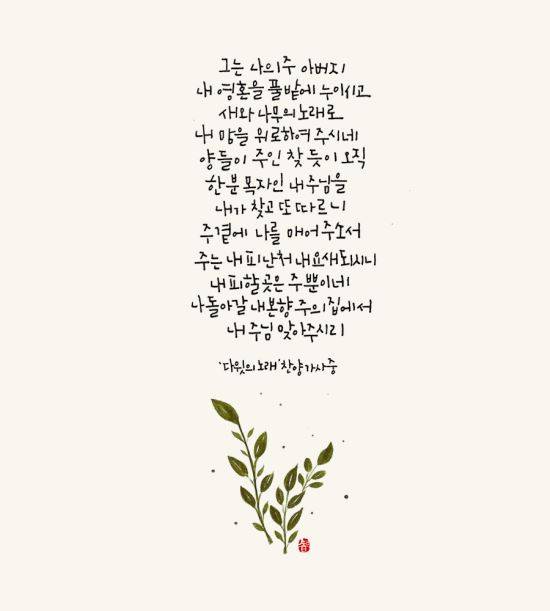 그는 나의 주 아버지
내 영혼을 풀밭에 누이시고
새와 나무의 노래로
내 맘을 위로하여 주시네
양들이 주인 찾듯이 오직
한분 목자인 내 주님을
내가 찾고 또 따르니
주곁에 나를 매어 주소서
주는 내 피난처 내 요새 되시니
내 피할 곳은 주 뿐이네
나 돌아갈 내 본향 주의 집에서
내 주님 맞아 주시리
'다윗의 노래' 찬양 가사 중